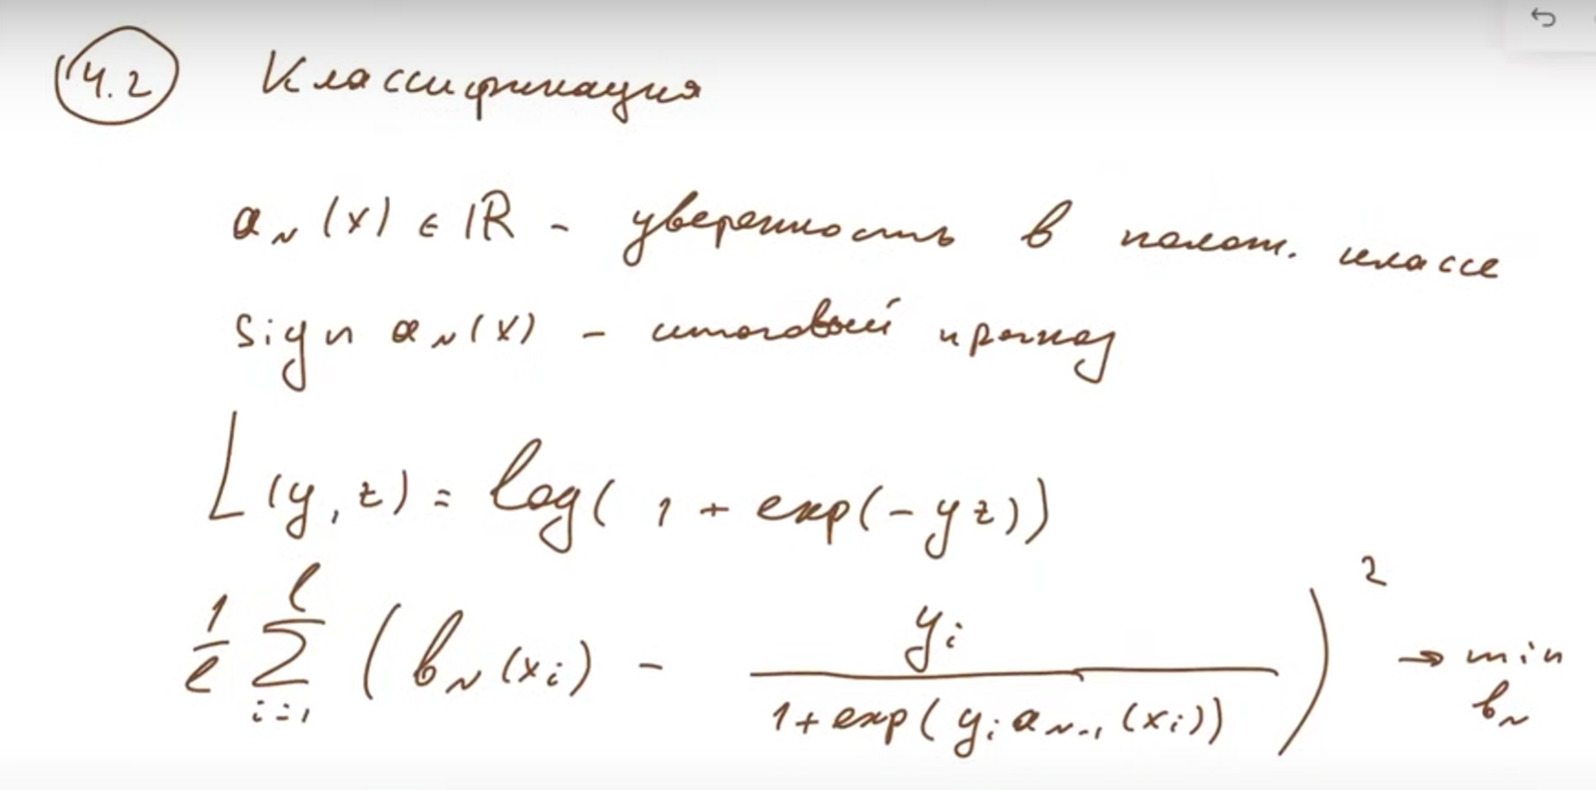 4.2 Классификация
a_N(x) ∈ ℝ - уверенность в полож. классе
sign a_N(x) - итоговый прогноз
L(y, z) = log(1 + exp(-yz))
1/ℓ ∑_{i=1}^{ℓ} (b_N(x_i) - y_i / (1 + exp(y_i a_{N-1}(x_i))))² → min_{b_N}